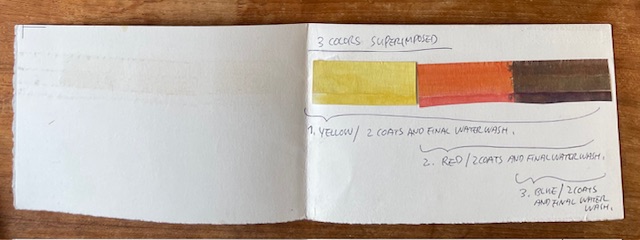 3 COLORS SUPERIMPOSED
1. YELLOW / 2 COATS AND FINAL WATER WASH.
2. RED / 2 COATS AND FINAL WATER WASH.
3. BLUE / 2 COATS
AND FINAL WATER
WASH.